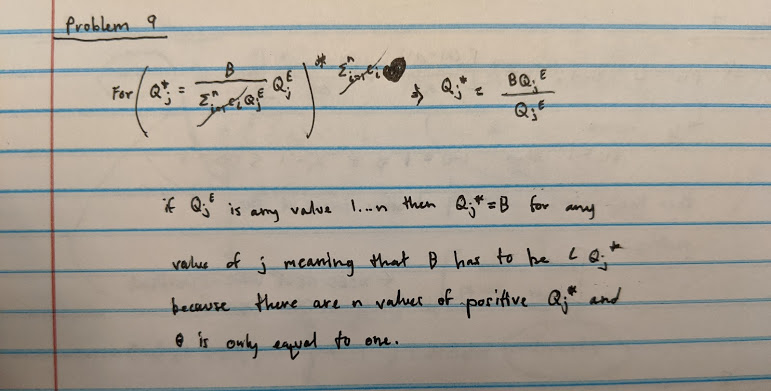 Problem 9
For ( Q*j = B / Σⁿi=1 ci QjE QjE ) * Σⁿi=1 ci ⇒ Qj* = BQjE / QjE
if QjE is any value 1...n then Qj* = B for any
value of j meaning that B has to be < Qj*
because there are n values of positive Qj* and
θ is only equal to one.